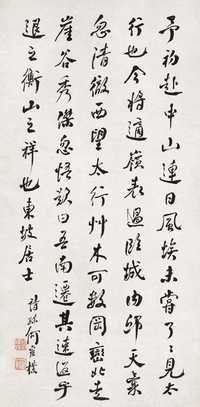 予初赴中山連日風埃未嘗了了見太
行也今將適嶺表過臨城內邱天氣
忽清徹西望太行艸木可數岡巒北走
崖谷秀傑忽悟歎曰吾南遷其速返乎
退之衡山之祥也東坡居士
詩孫何維樸